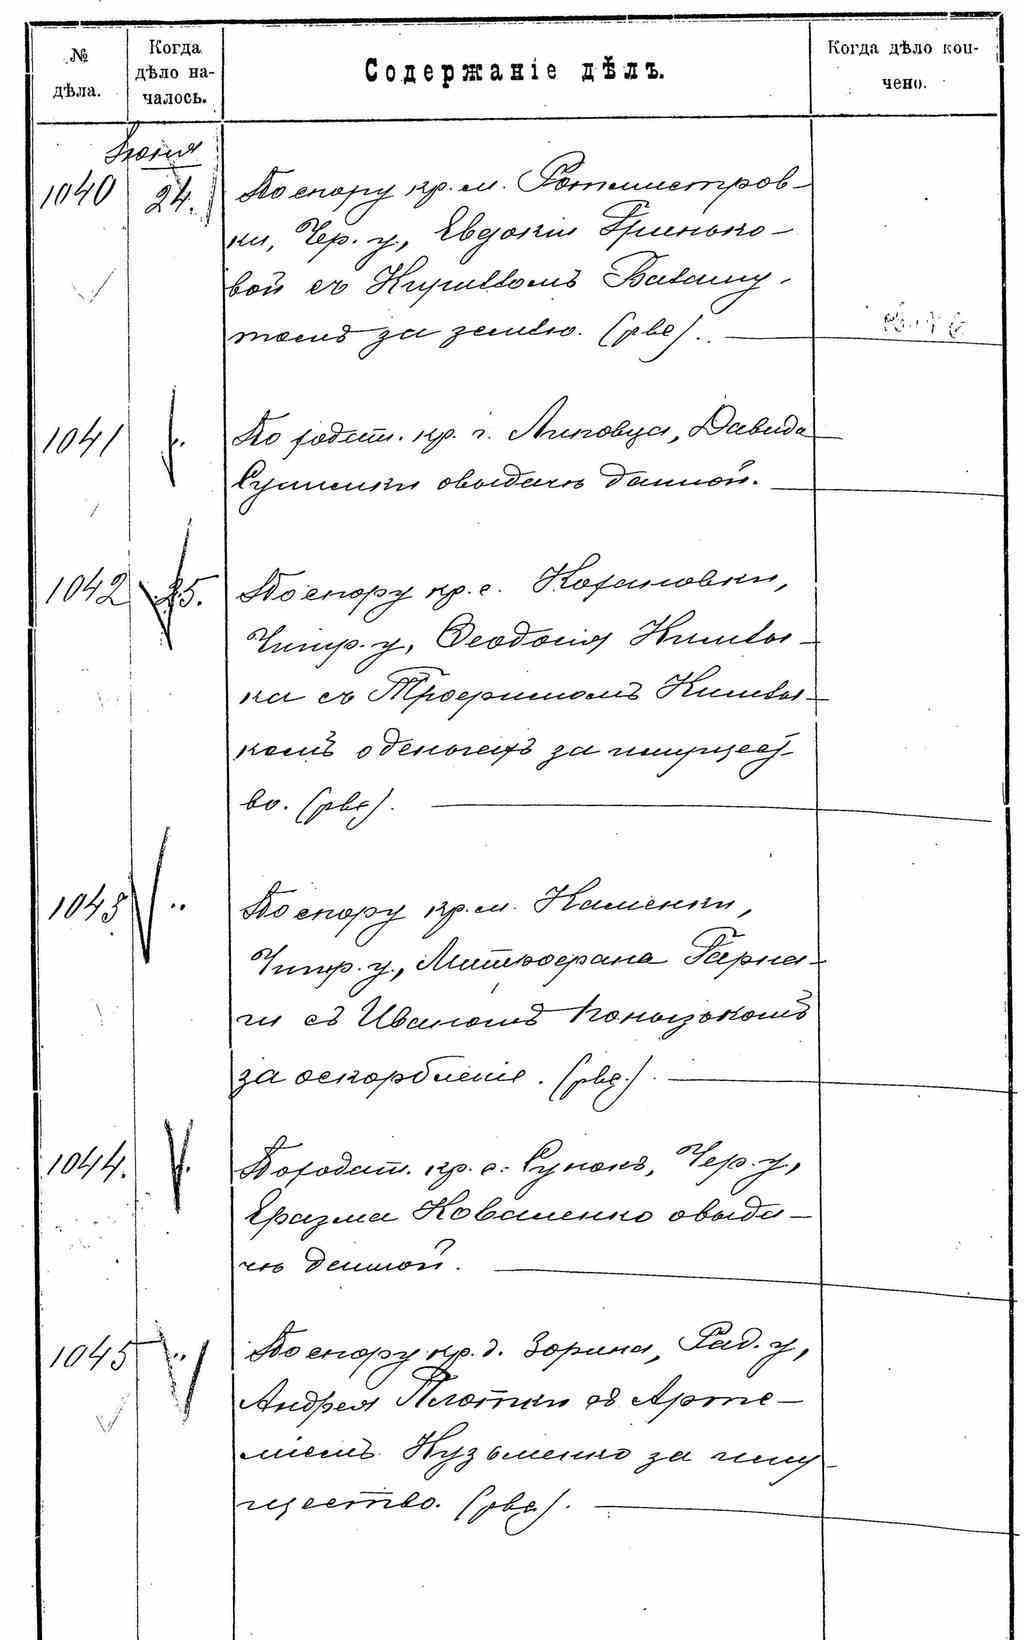 № дѣла.
Когда дѣло началось.
Содержаніе дѣлъ.
Когда дѣло кончено.
Іюня
1040 24. По спору кр. м. Ротмистров-
ки, Чер. у., Евдокіи Гринько-
вой съ Кирилломъ
томъ за землю. (рве).
1041 " По ходат. кр. г. Липовца, Давида
о выдачѣ данной.
1042 25. По спору кр. с. Кохановки,
Чигир. у., Ѳеодосія
ка съ Трофимомъ
комъ о деньгахъ за имущест-
во. (рве).
1043 " По спору кр. м. Каменки,
Чигир. у., Митрофана Гарка-
ги съ Иваномъ
за оскорбленіе. (рве.).
1044. " По ходат. кр. с. Сунокъ, Чер. у.,
Еразма Коваленко о выда-
чѣ данной.
1045 " По спору кр. д. Зорина, Рад. у.,
Андрея Плотки съ Арте-
міемъ Кузьменко за иму-
щество. (рве).